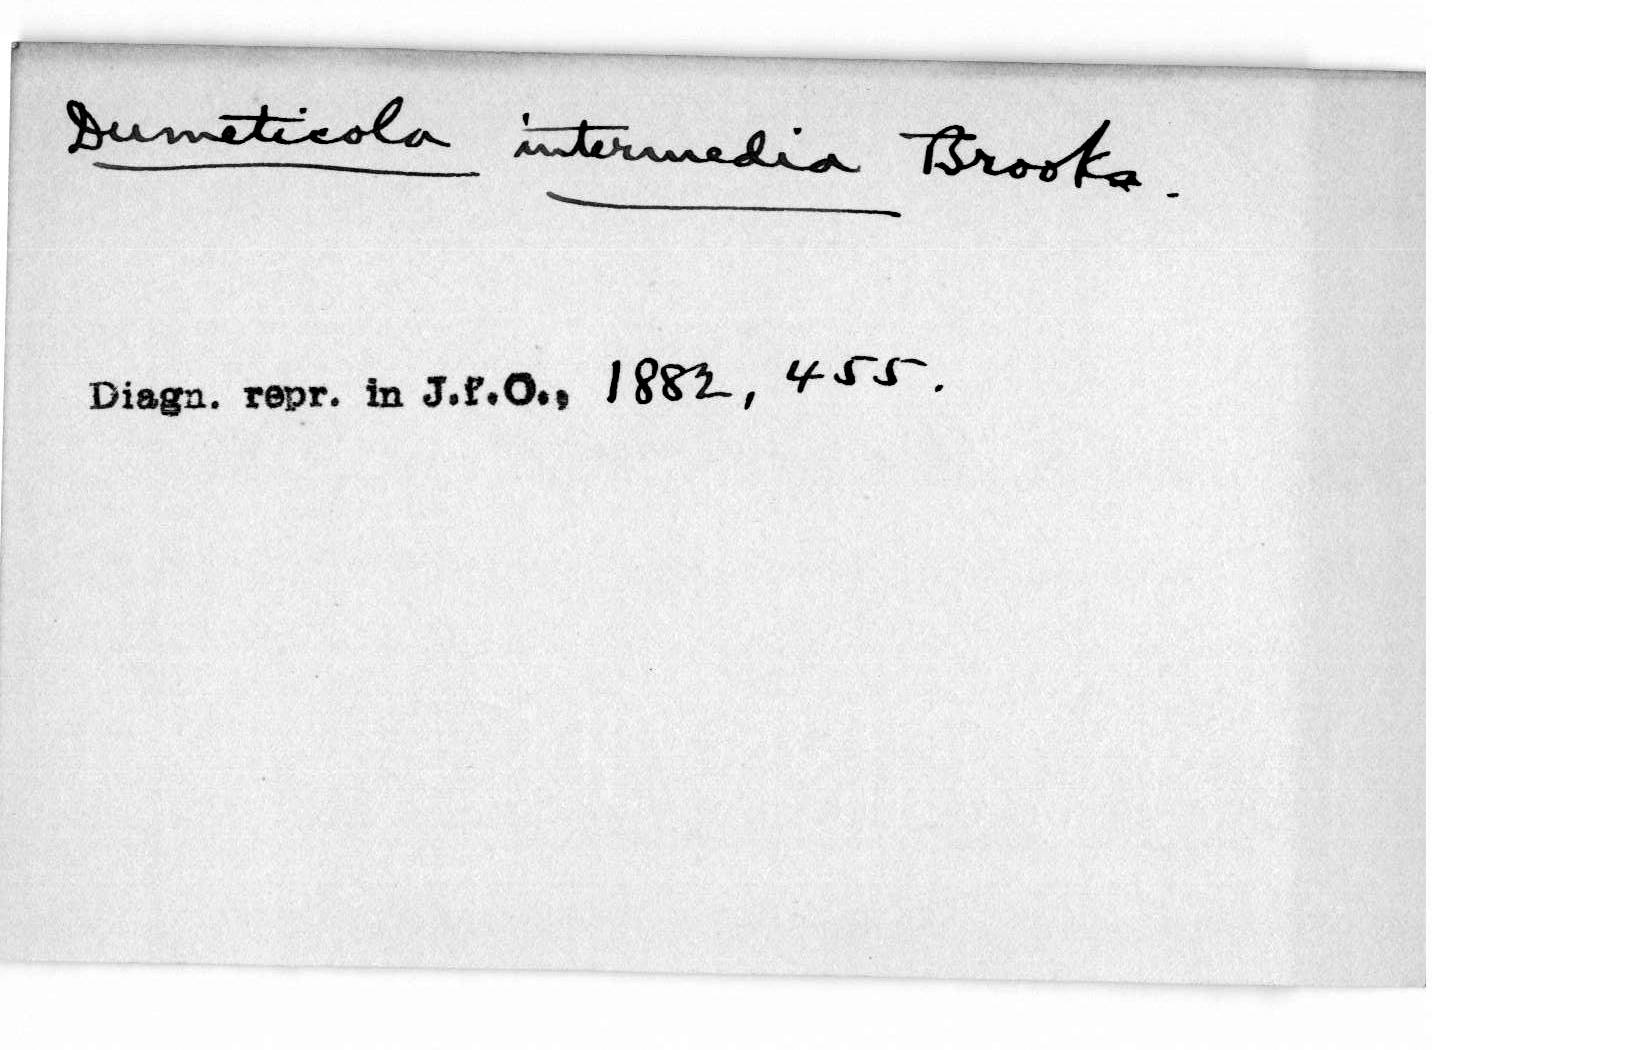 Dumeticola intermedia Brooks.
Diagn. repr. in J.f.O., 1882, 455.